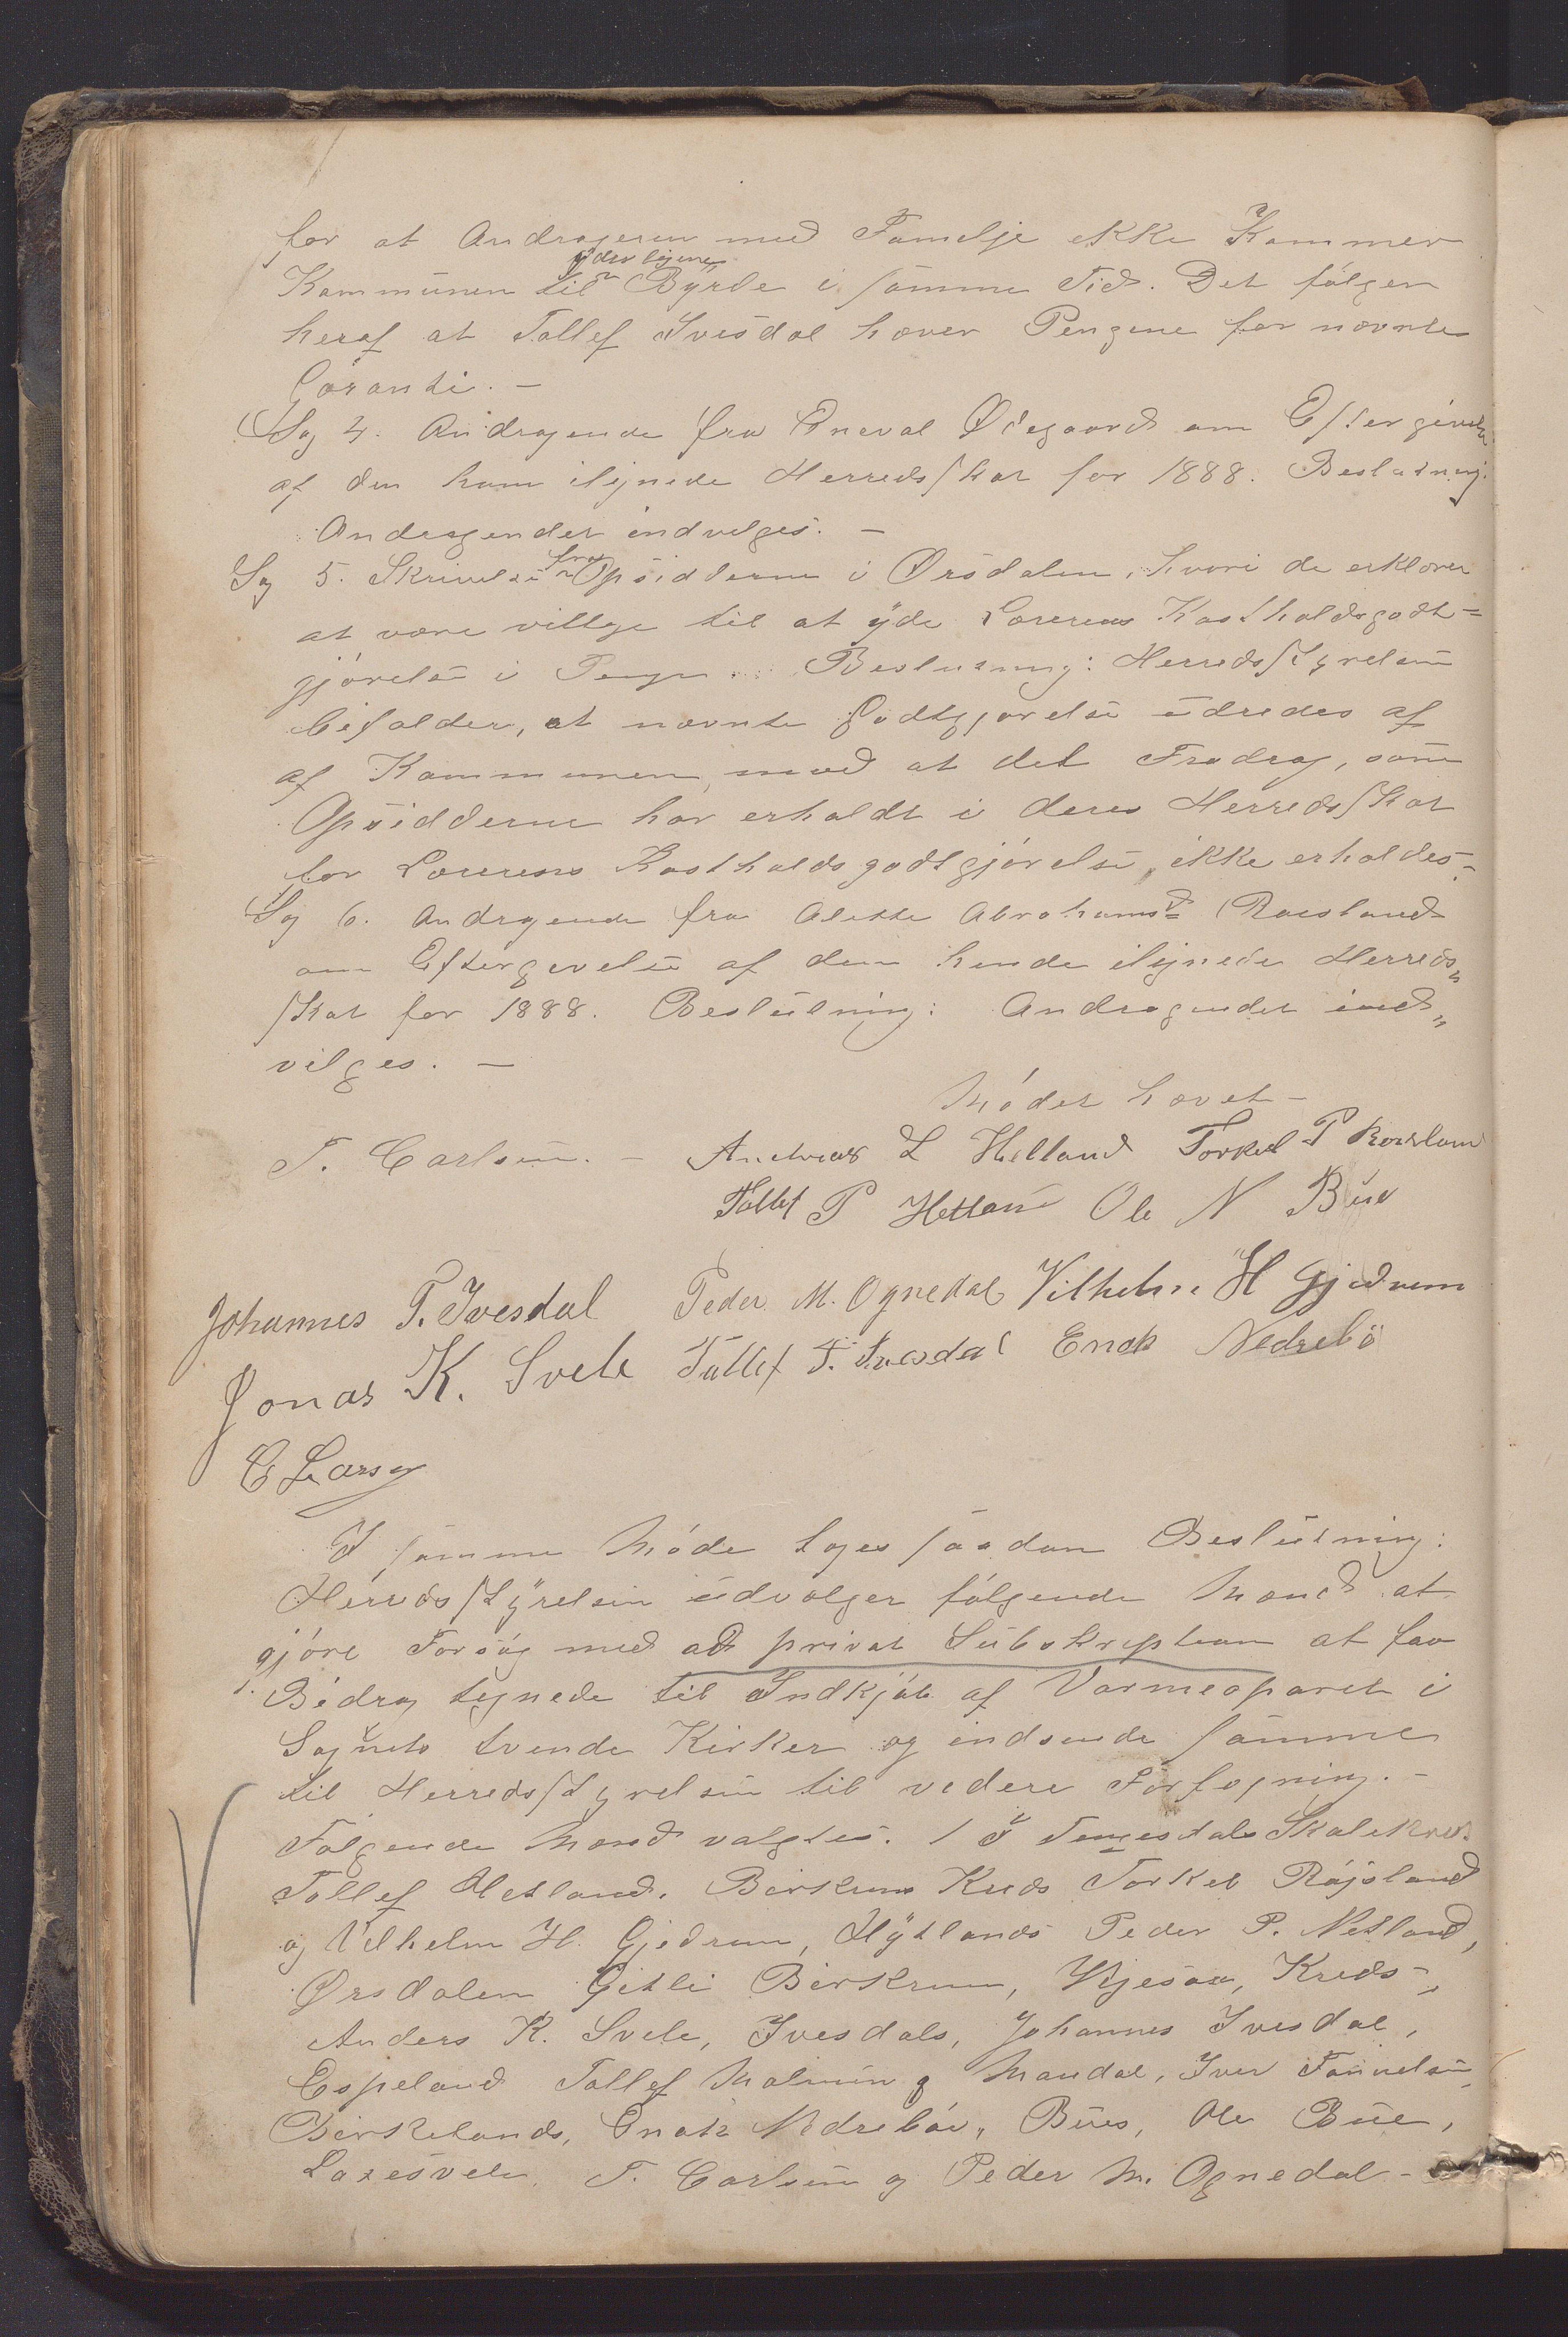 for at Andrageren med Familje ikke Kommer
yderligere
Kommunen til Byrde i samme Tid. Det følger
heraf at Tollef Ivesdal hæver Pengene for nævnte
Garanti. —
Sag 4. Andragende fra Eneval Ødegaard om Eftergivelse
af den ham ilignede Herredsskat for 1888. Beslutning:
Andragendet indvilges. —
Sag 5. Skrivelse fra Opsidderne i Ørsdalen, hvori de erklærer
at være villige til at yde Lærerens Kostholdsgodt-
gjørelse i Penge. Beslutning: Herredsstyrelsen
bifalder, at nævnte Godtgjørelse udredes af
af Kommunen, mod at det Fradrag, som
Opsidderne har erholdt i deres Herredsskat
for Lærerens Kostholdsgodtgjørelse, ikke erholdes. -
Sag 6. Andragende fra Alette Abrahamsd Røisland
om Eftergivelse af den hende ilignede Herreds„
skat for 1888. Beslutning: Andragendet ind„
vilges. —
Mødet hævet —
T. Carlsen. — Andreas L Helland Torkel P Røisland
Tollef P Hetland Ole N Bue
Johannes T. Ivesdal Peder M. Ognedal Vilhelm H Gjedrem
Jonas K. Svele Tollef T. Ivesdal Enok Nedrebø
C Larsen
I samme Møde toges saadan Beslutning:
Herredsstyrelsen udvælger følgende Mænd at
gjøre Forsøg med ad privat Subskription at faa
Bidrag tegnede til Indkjøb af Varmeaparet i
Sognets tvende Kirker og indsende samme
til Herredsstyrelsen til videre Forføgning. —
Følgende Mænd valgtes. I Tengesdals Skolekreds
Tollef Hetland, Birkrems Kreds Torkel Røjsland
og Vilhelm H. Gjedrem, Hytlands Peder P. Netland,
Ørsdalen Gitle Birkrem, Vikjesaa, Kreds-,
Anders K. Svele, Ivesdals, Johannes Ivesdal,
Espeland Tollef Malmin og Maudal, Iver Tønnesen,
Birkelands, Enok Nedrebøe, Bues, Ole Bue,
Laxesvele, T. Carlsen og Peder M. Ognedal —